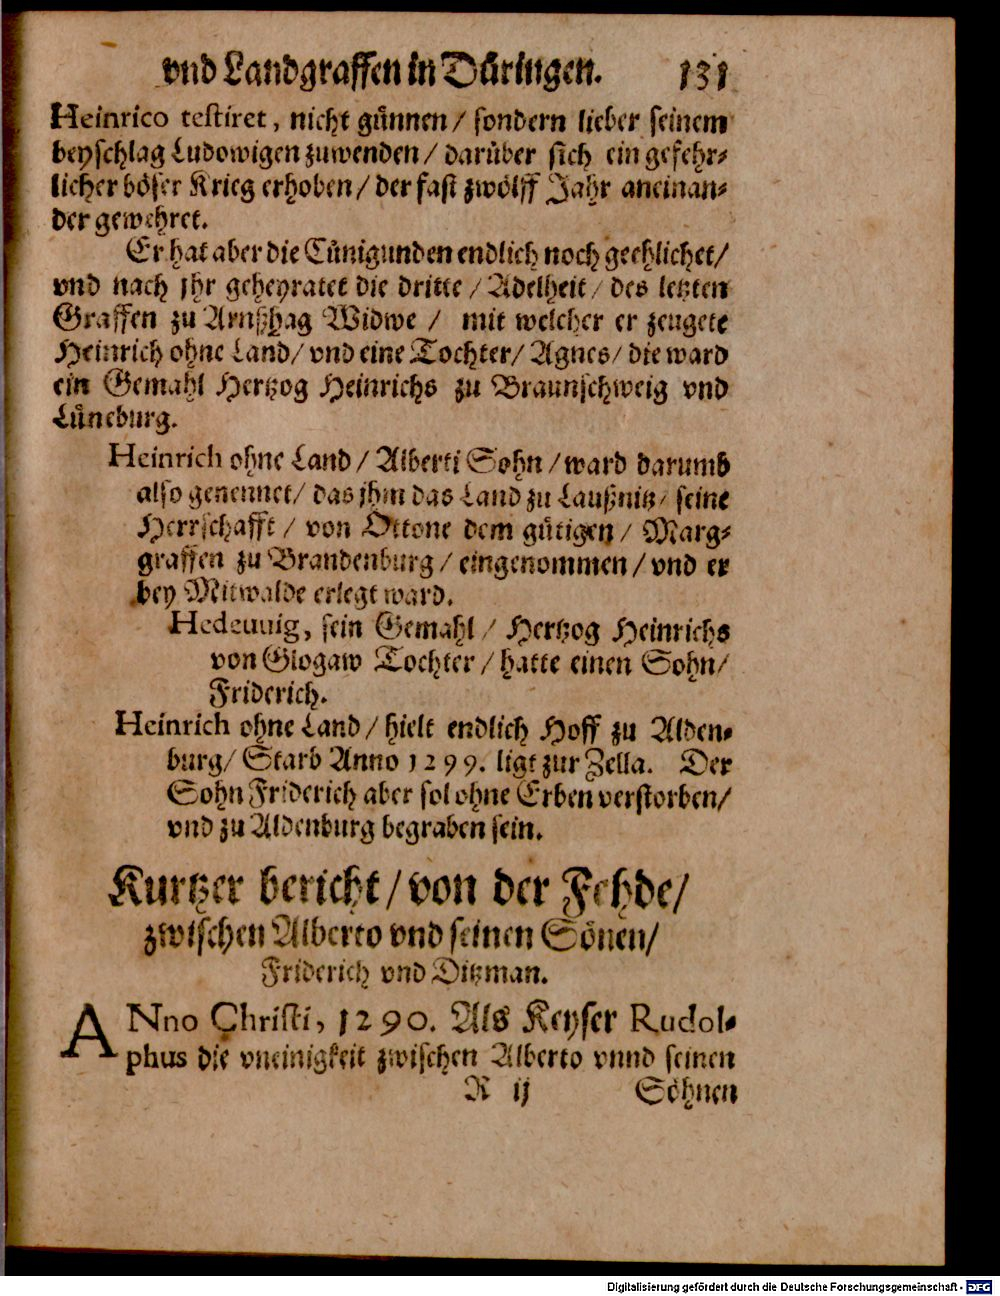 vnd Landgraffen in Düringen. 131
Heinrico testiret, nicht günnen / sondern lieber seinem
beyschlag Ludowigen zuwenden / darüber sich ein gefehr-
licher böser Krieg erhoben / der fast zwölff Jahr aneinan-
der gewehret.
Er hat aber die Cünigunden endlich noch geehlichet /
vnd nach jhr geheyratet die dritte / Adelheit / des letzten
Graffen zu Arnßhag Widwe / mit welcher er zeugete
Heinrich ohne Land / vnd eine Tochter / Agnes / die ward
ein Gemahl Hertzog Heinrichs zu Braunschweig vnd
Lüneburg.
Heinrich ohne Land / Alberti Sohn / ward darumb
also genennet / das jhm das Land zu Laußnitz / seine
Herrschafft / von Ottone dem gütigen / Marg-
graffen zu Brandenburg / eingenommen / vnd er
bey Mitwalde erlegt ward.
Hedeuuig, sein Gemahl / Hertzog Heinrichs
von Glogaw Tochter / hatte einen Sohn /
Friderich.
Heinrich ohne Land / hielt endlich Hoff zu Alden-
burg / Starb Anno 1299. ligt zur Zella. Der
Sohn Friderich aber sol ohne Erben verstorben /
vnd zu Aldenburg begraben sein.
Kurtzer bericht / von der Fehde /
zwischen Alberto vnd seinen Sönen /
Friderich vnd Ditzman.
ANno Christi, 1290. Als Keyser Rudol-
phus die vneinigkeit zwischen Alberto vnnd seinen
R ij Söhnen
Digitalisierung gefördert durch die Deutsche Forschungsgemeinschaft - DFG